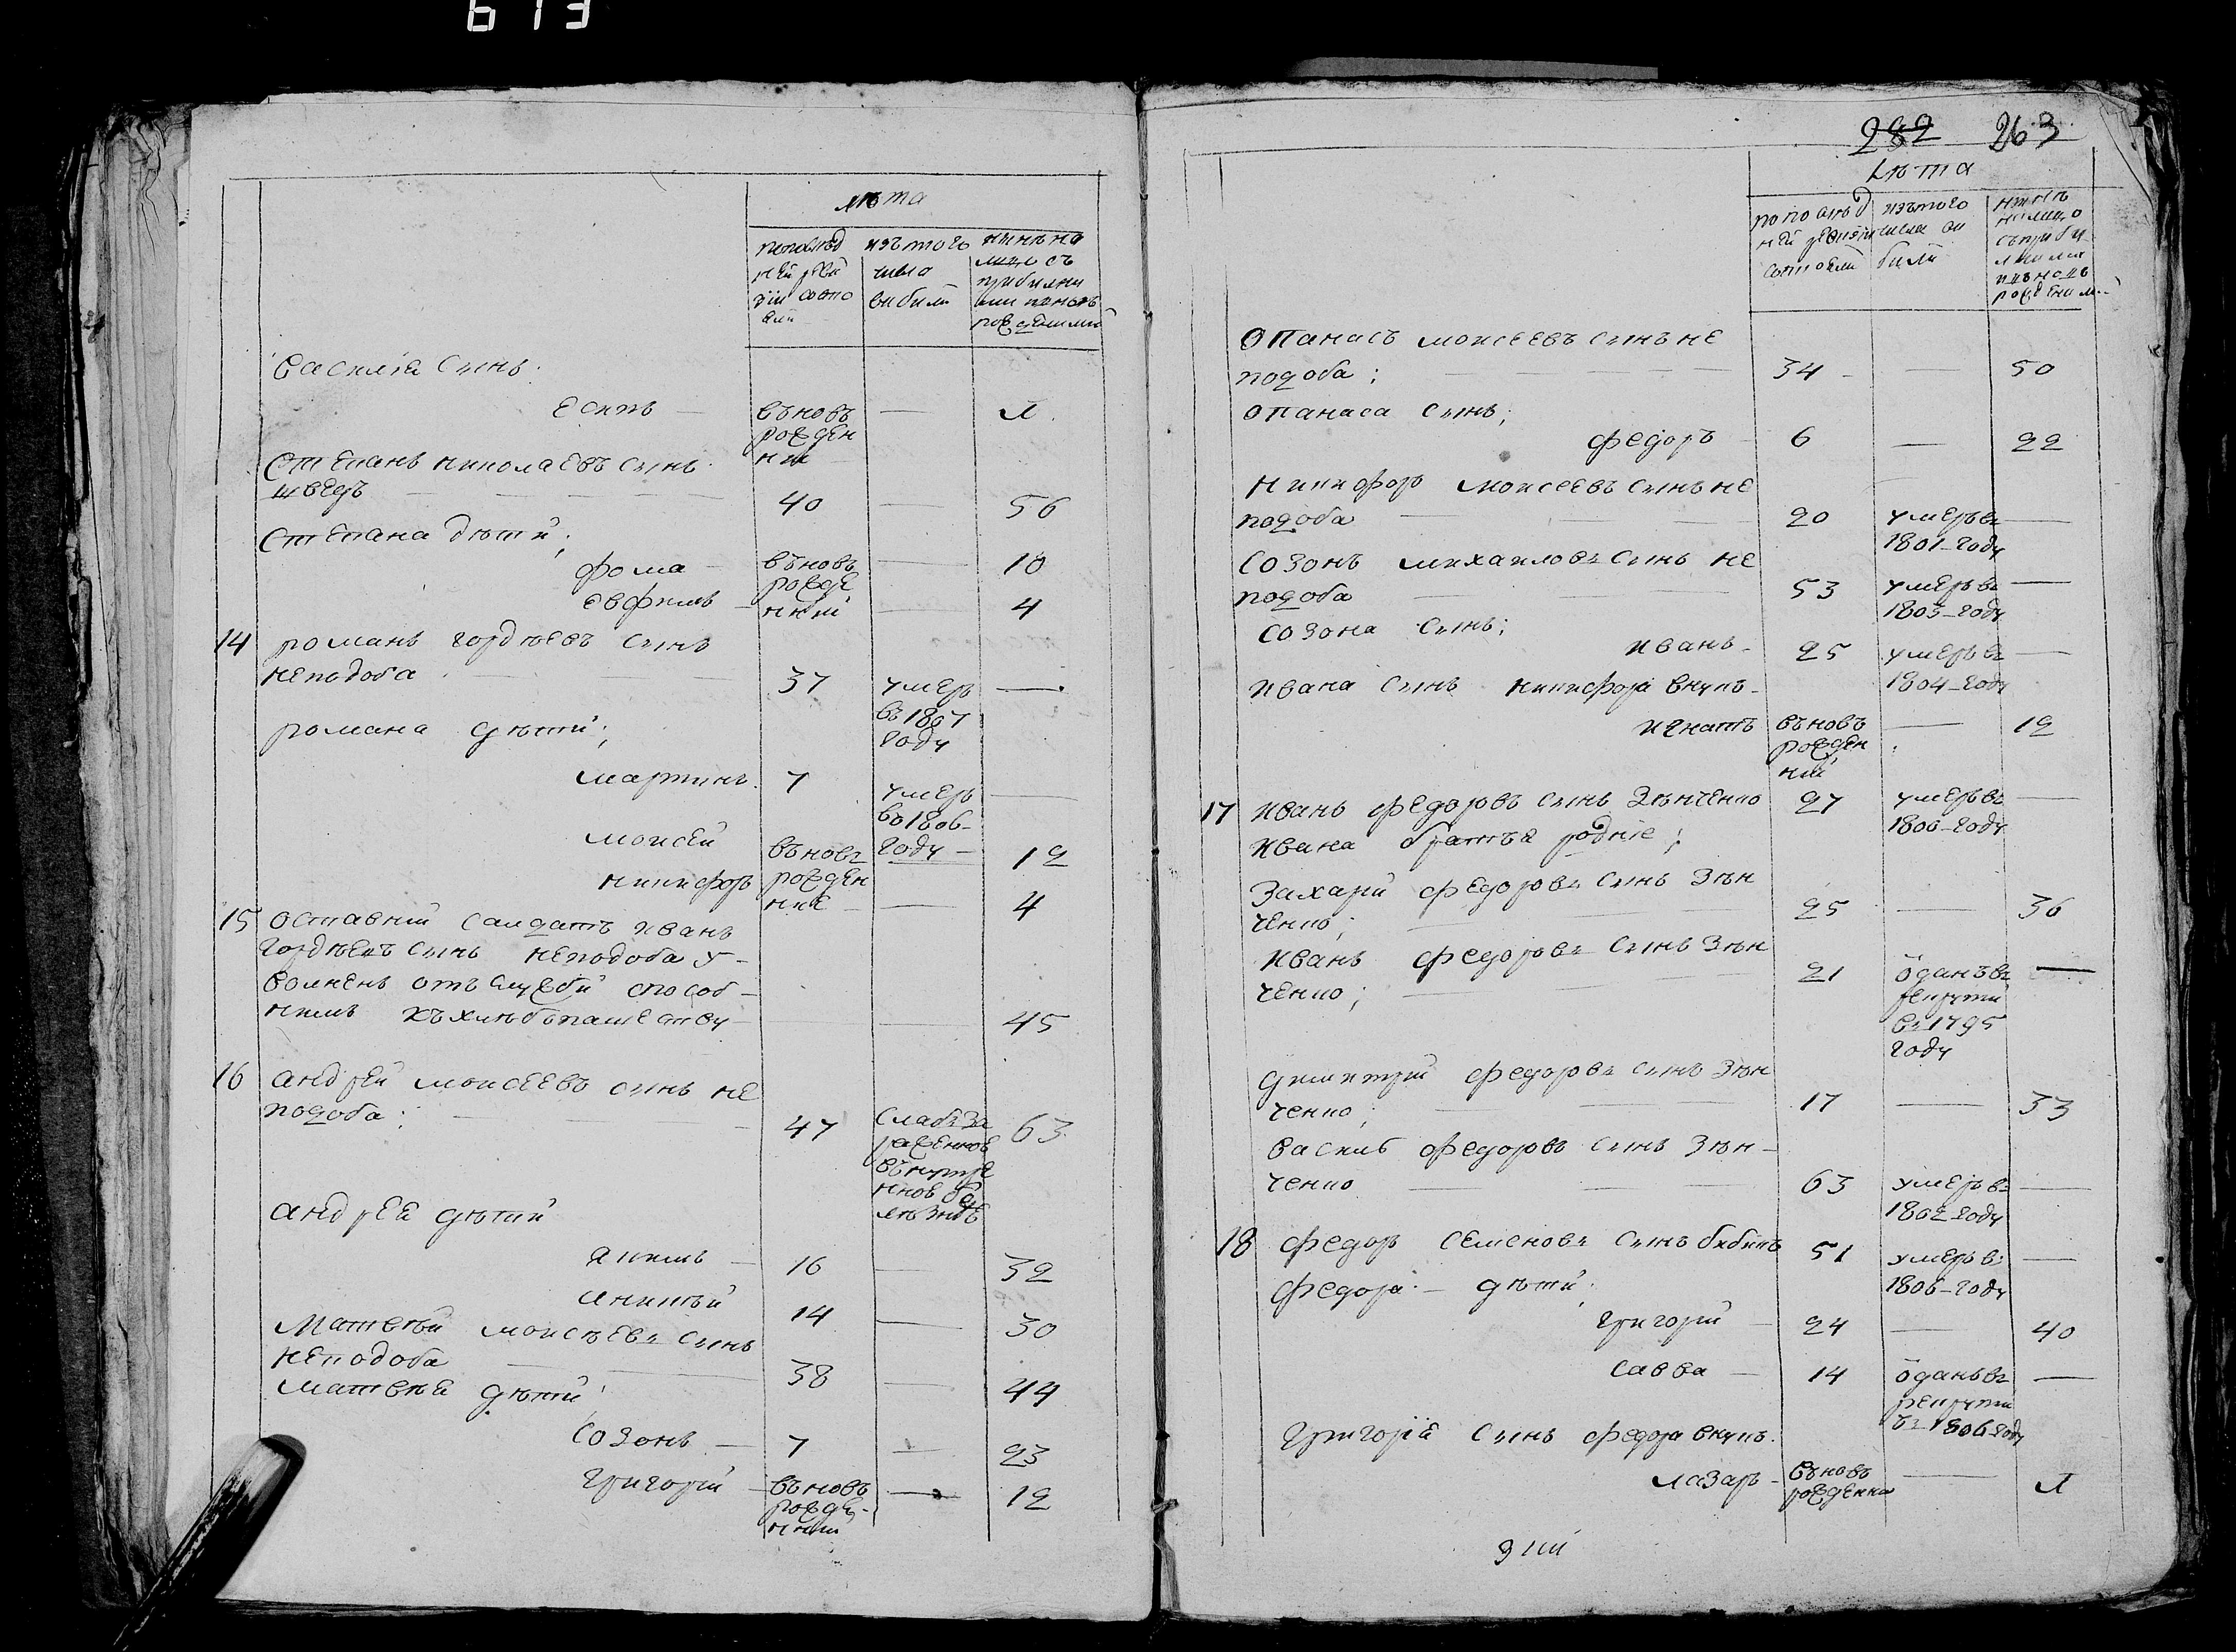 613
лѣта
попослѣд
ней реви
зіи состо
яли
изъ того
числа
выбыли
нынѣ на
лицо съ
прибылыми
или вновь
рождеными
василія сынъ
есипъ — въновь — 1
рожден
ни
степанъ николаевъ сынъ
шведъ — — — 40 — 56
степана дѣти;
фома — въновь — 10
рожде
евфимъ — нній — 4
14 романъ гордѣевъ сынъ
неподоба — — 37 умеръ —
въ 1807
году
романа дѣти;
мартинъ 7 умеръ —
во 1806
году
моисей въновъ — 12
рожден
никифоръ ніе — 4
15 оставній салдатъ иванъ
гордѣевъ сынъ неподоба у-
волненъ отъ службы способ-
нимъ къ хлѣбопашеству — — 45
16 андрей моисеевъ сынъ не
подоба: — — 47 63
слабъ за
раженнов
въ нутре
нной бо
лѣзнѣ
андрея дѣтии
якимъ — 16 — 32
аникѣй 14 — 30
матвѣй моисѣевъ сынъ
неподоба — 38 — 44
матвѣя дѣти;
созонъ — 7 — 23
григорій — въновь — 12
рожде-
нній
282 263
Лѣта
попослѣд
ней ревизіи
состояли
изъ того
числа вы
были
нынѣ
налицо
съ прибы
лыми
и вновь
рожденими
опанасъ моисеевъ сынъ не
подоба; — — 34 — 50
опанаса сынъ;
федоръ 6 — 22
никифоръ моисеевъ сынъ не
подоба — — 20 умеръ въ —
1801-году
созонъ михаиловъ сынъ не
подоба — — 53 умеръ въ —
1803-году
созона сынъ;
иванъ — 25 умеръ въ —
1804-году
ивана сынъ никифора внукъ-
игнатъ въновь — 12
рожден
ній
17 иванъ федоровъ сынъ зѣнченко 27 умеръ въ —
1806-году
ивана братья родніе;
захарій федоровъ сынъ зѣн
ченко; — — 25 — 36
иванъ федоровъ сынъ зѣн
ченко; — — 21 —
оданъ въ
рекрути
въ 1795
году
димитрій федоровъ сынъ зѣн
ченко; — — 17 — 33
василь федоровъ сынъ зѣн-
ченко — — 63 умеръ въ —
1802-году
18 федоръ семеновъ сынъ бибикъ 51 умеръ въ —
1806-году
федора — дѣти;
григорій — 24 — 40
савва — 14 оданъ въ —
рекрути
въ 1806 году
григорія сынъ федора внукъ
лазарь — въновь — 1
рожденни